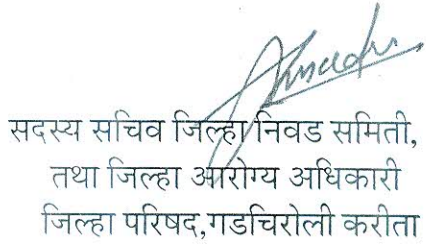 सदस्य सचिव जिल्हा निवड समिती,
तथा जिल्हा आरोग्य अधिकारी
जिल्हा परिषद,गडचिरोली करीता